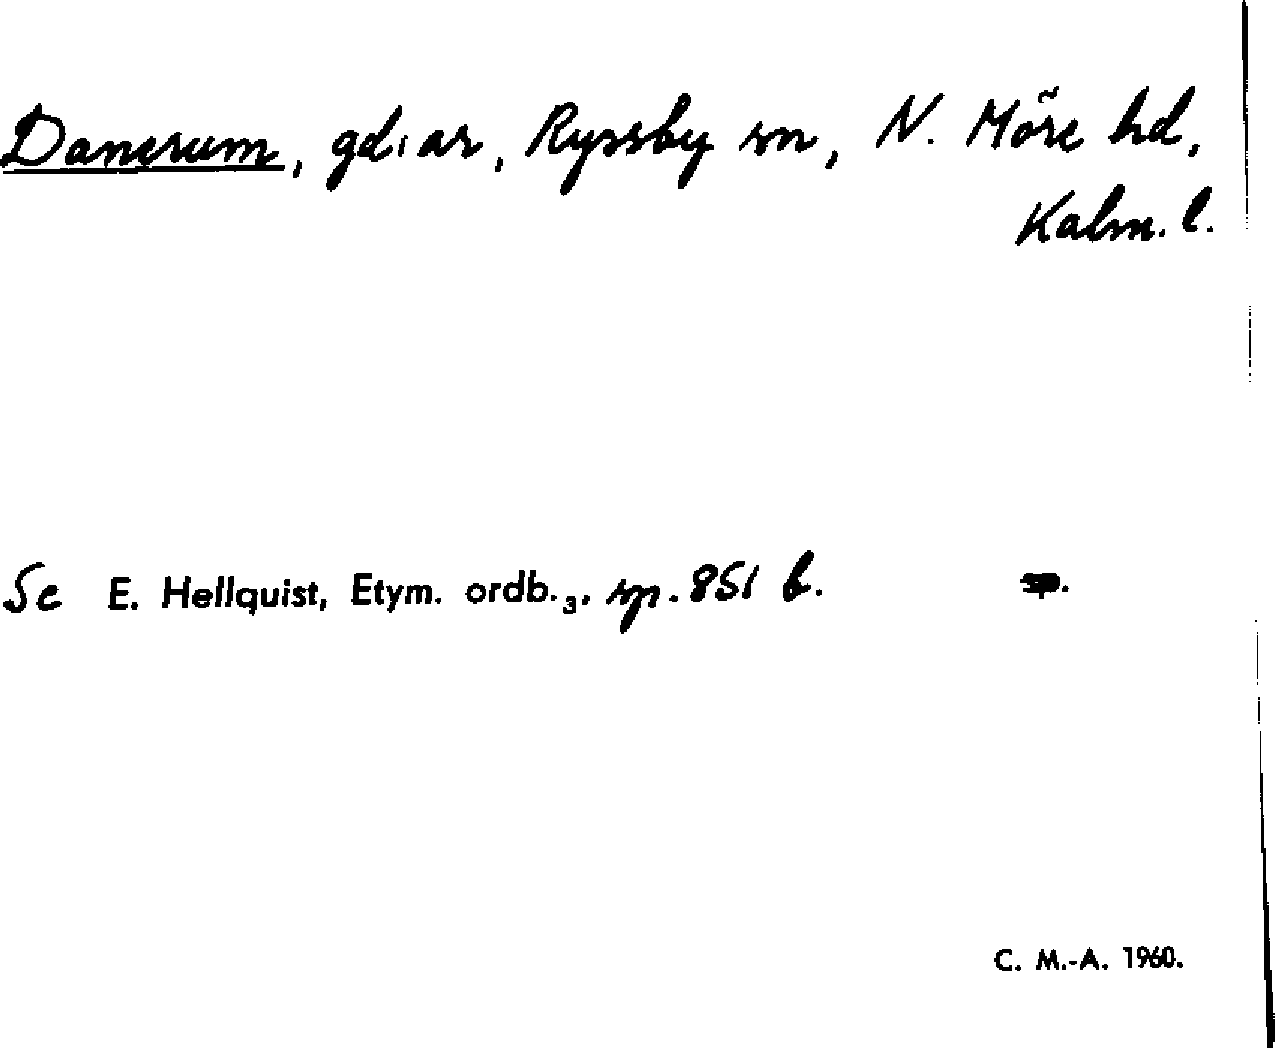 Danerum, gd:ar, Ryssby sn, N. Möre hd,
Kalm. l.
Se E. Hellquist, Etym. ordb.₃, sp. 851 b.
C. M.-A. 1960.